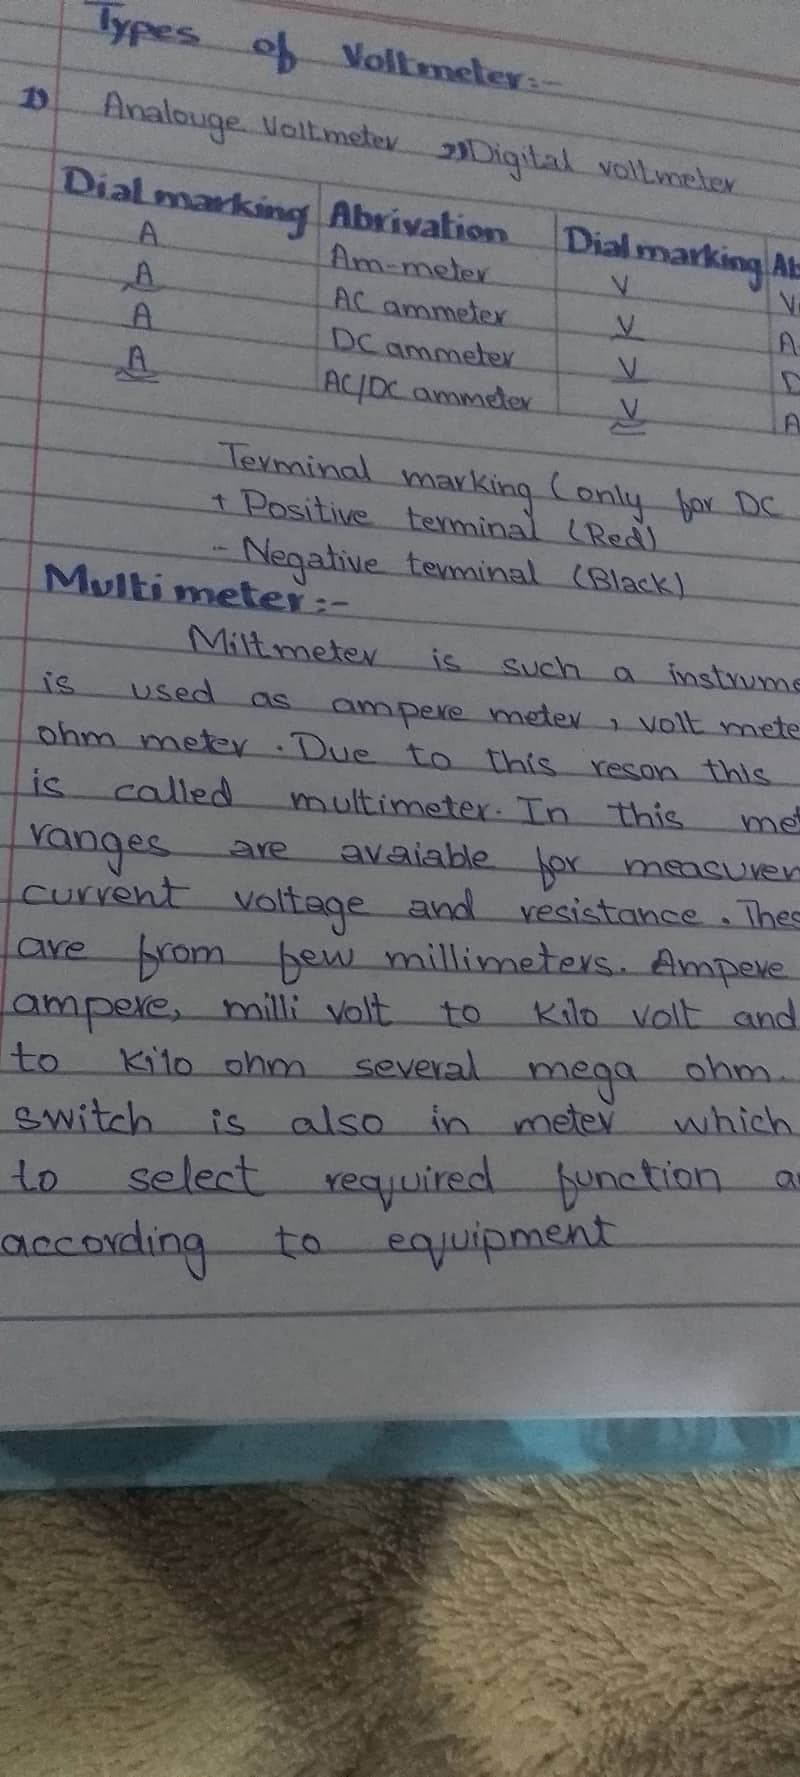 Types of Voltmeter:-
1) Analouge Voltmeter 2) Digital voltmeter
Dial marking | Abrivation | Dial marking | Ab
A | Am-meter | V | V
A | AC ammeter | V | A
A | DC ammeter | V | D
A | AC/DC ammeter | V | A
Terminal marking (only for DC
+ Positive terminal (Red)
- Negative terminal (Black)
Multimeter:-
Miltmeter is such a instrume
is used as ampere meter, volt mete
ohm meter. Due to this reson this
is called multimeter. In this me
ranges are avaiable for measurem
current voltage and resistance. Thes
are from few millimeters. Ampere
ampere, milli volt to kilo volt and
to kilo ohm several mega ohm.
switch is also in meter which
to select required function a
according to equipment